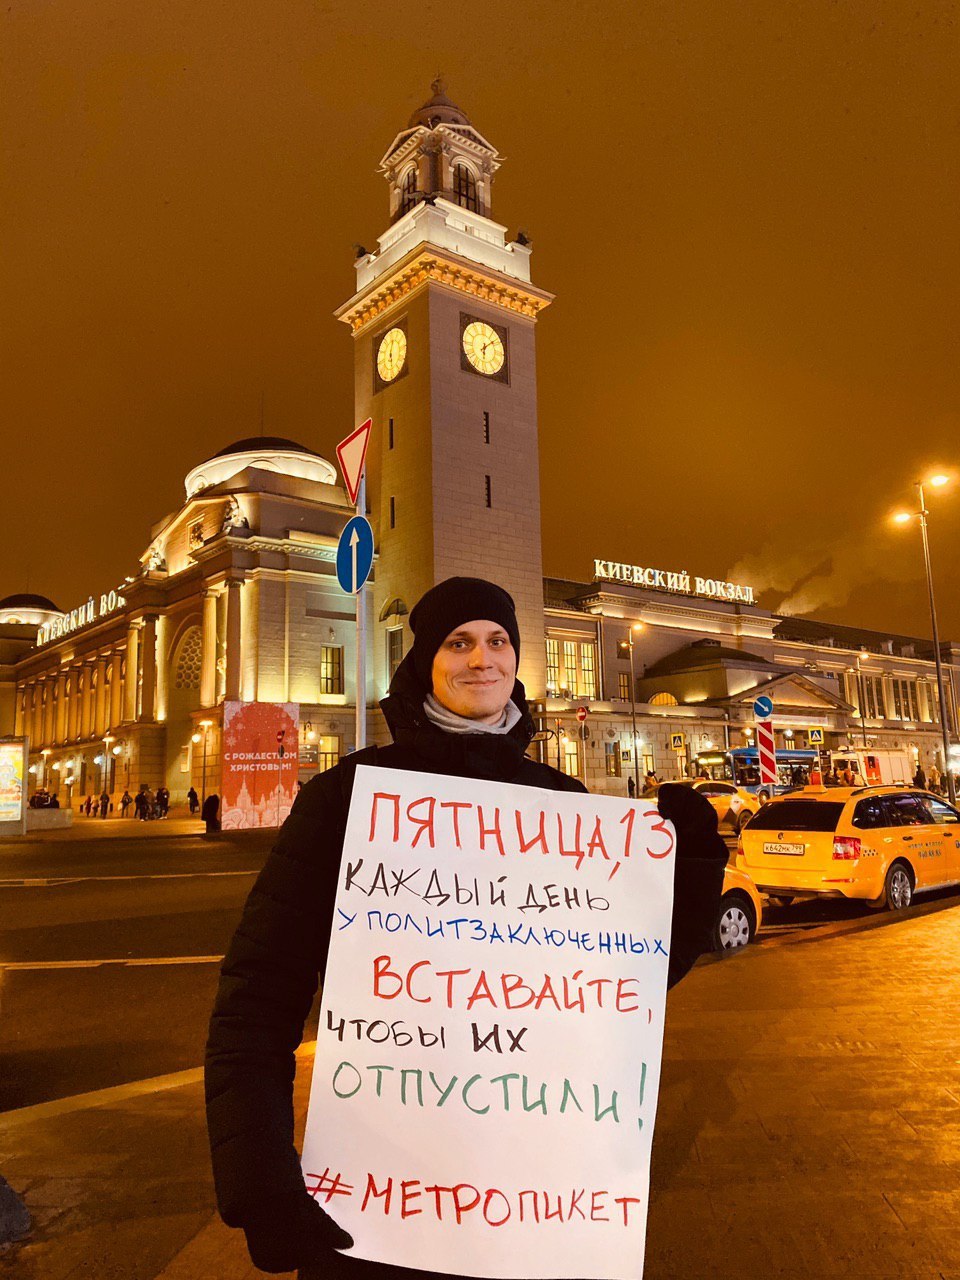 КИЕВСКИЙ ВОКЗАЛ
КИЕВСКИЙ ВО
С РОЖДЕСТВОМ
ХРИСТОВЫМ!
К642МК 799
ПЯТНИЦА, 13
КАЖДЫЙ ДЕНЬ
У ПОЛИТЗАКЛЮЧЕННЫХ
ВСТАВАЙТЕ,
ЧТОБЫ ИХ
ОТПУСТИЛИ!
#МЕТРОПИКЕТ